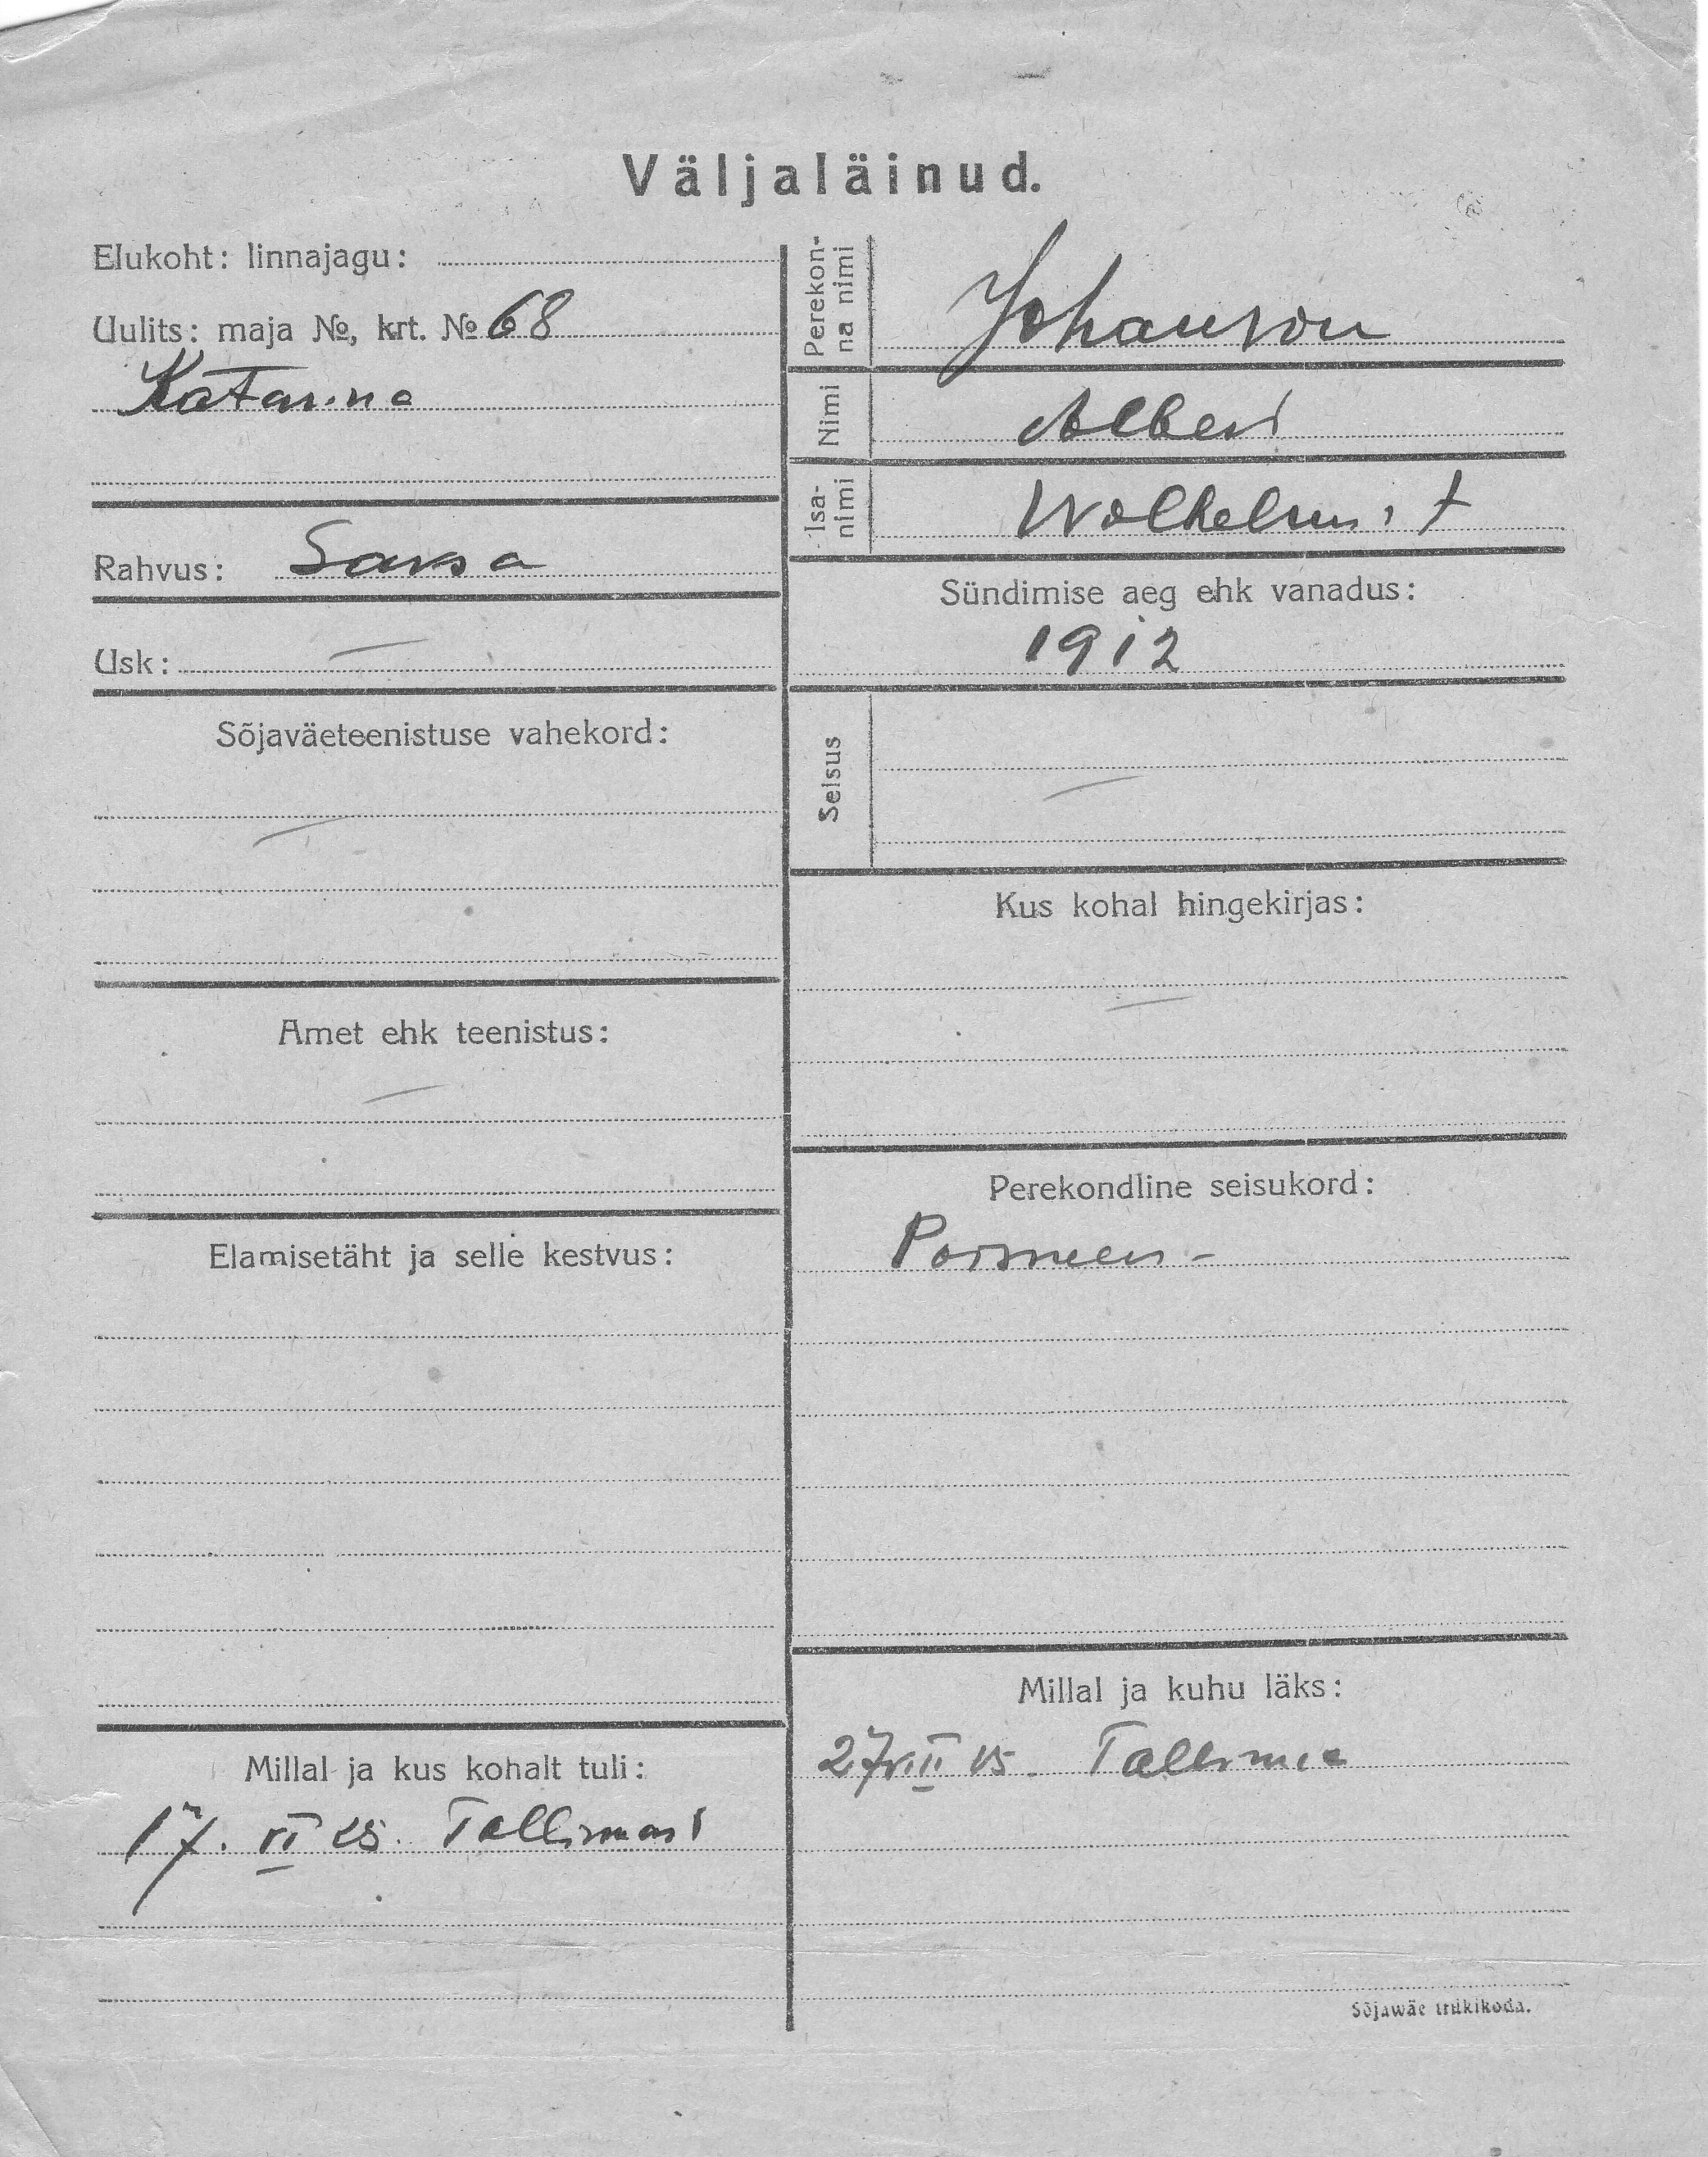 Väljaläinud.
Elukoht: linnajagu:
Uulits: maja №, krt. № 68
Katarina
Rahvus: Saksa
Usk: —
Sõjaväeteenistuse vahekord:
—
Amet ehk teenistus:
—
Elamisetäht ja selle kestvus:
Millal ja kus kohalt tuli:
17. VI 25. Tallinnast
Perekon-
na nimi
Johanson
Nimi
Albert
Isa-
nimi
Sündimise aeg ehk vanadus:
1912
Seisus
—
Kus kohal hingekirjas:
—
Perekondline seisukord:
Poismees -
Millal ja kuhu läks:
27 VIII 25. Tallinna
Sõjawäe trükikoda.